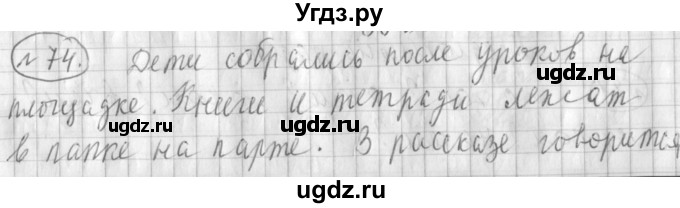 Угдз.ру
№ 74. Дети собрались после уроков на
площадке. Книги и тетради лежат
в папке на парте. В рассказе говорится
ugdz.ru
ugdz.ru
ugdz.ru
ugdz.ru
ugdz.ru
ugdz.ru
ugdz.ru